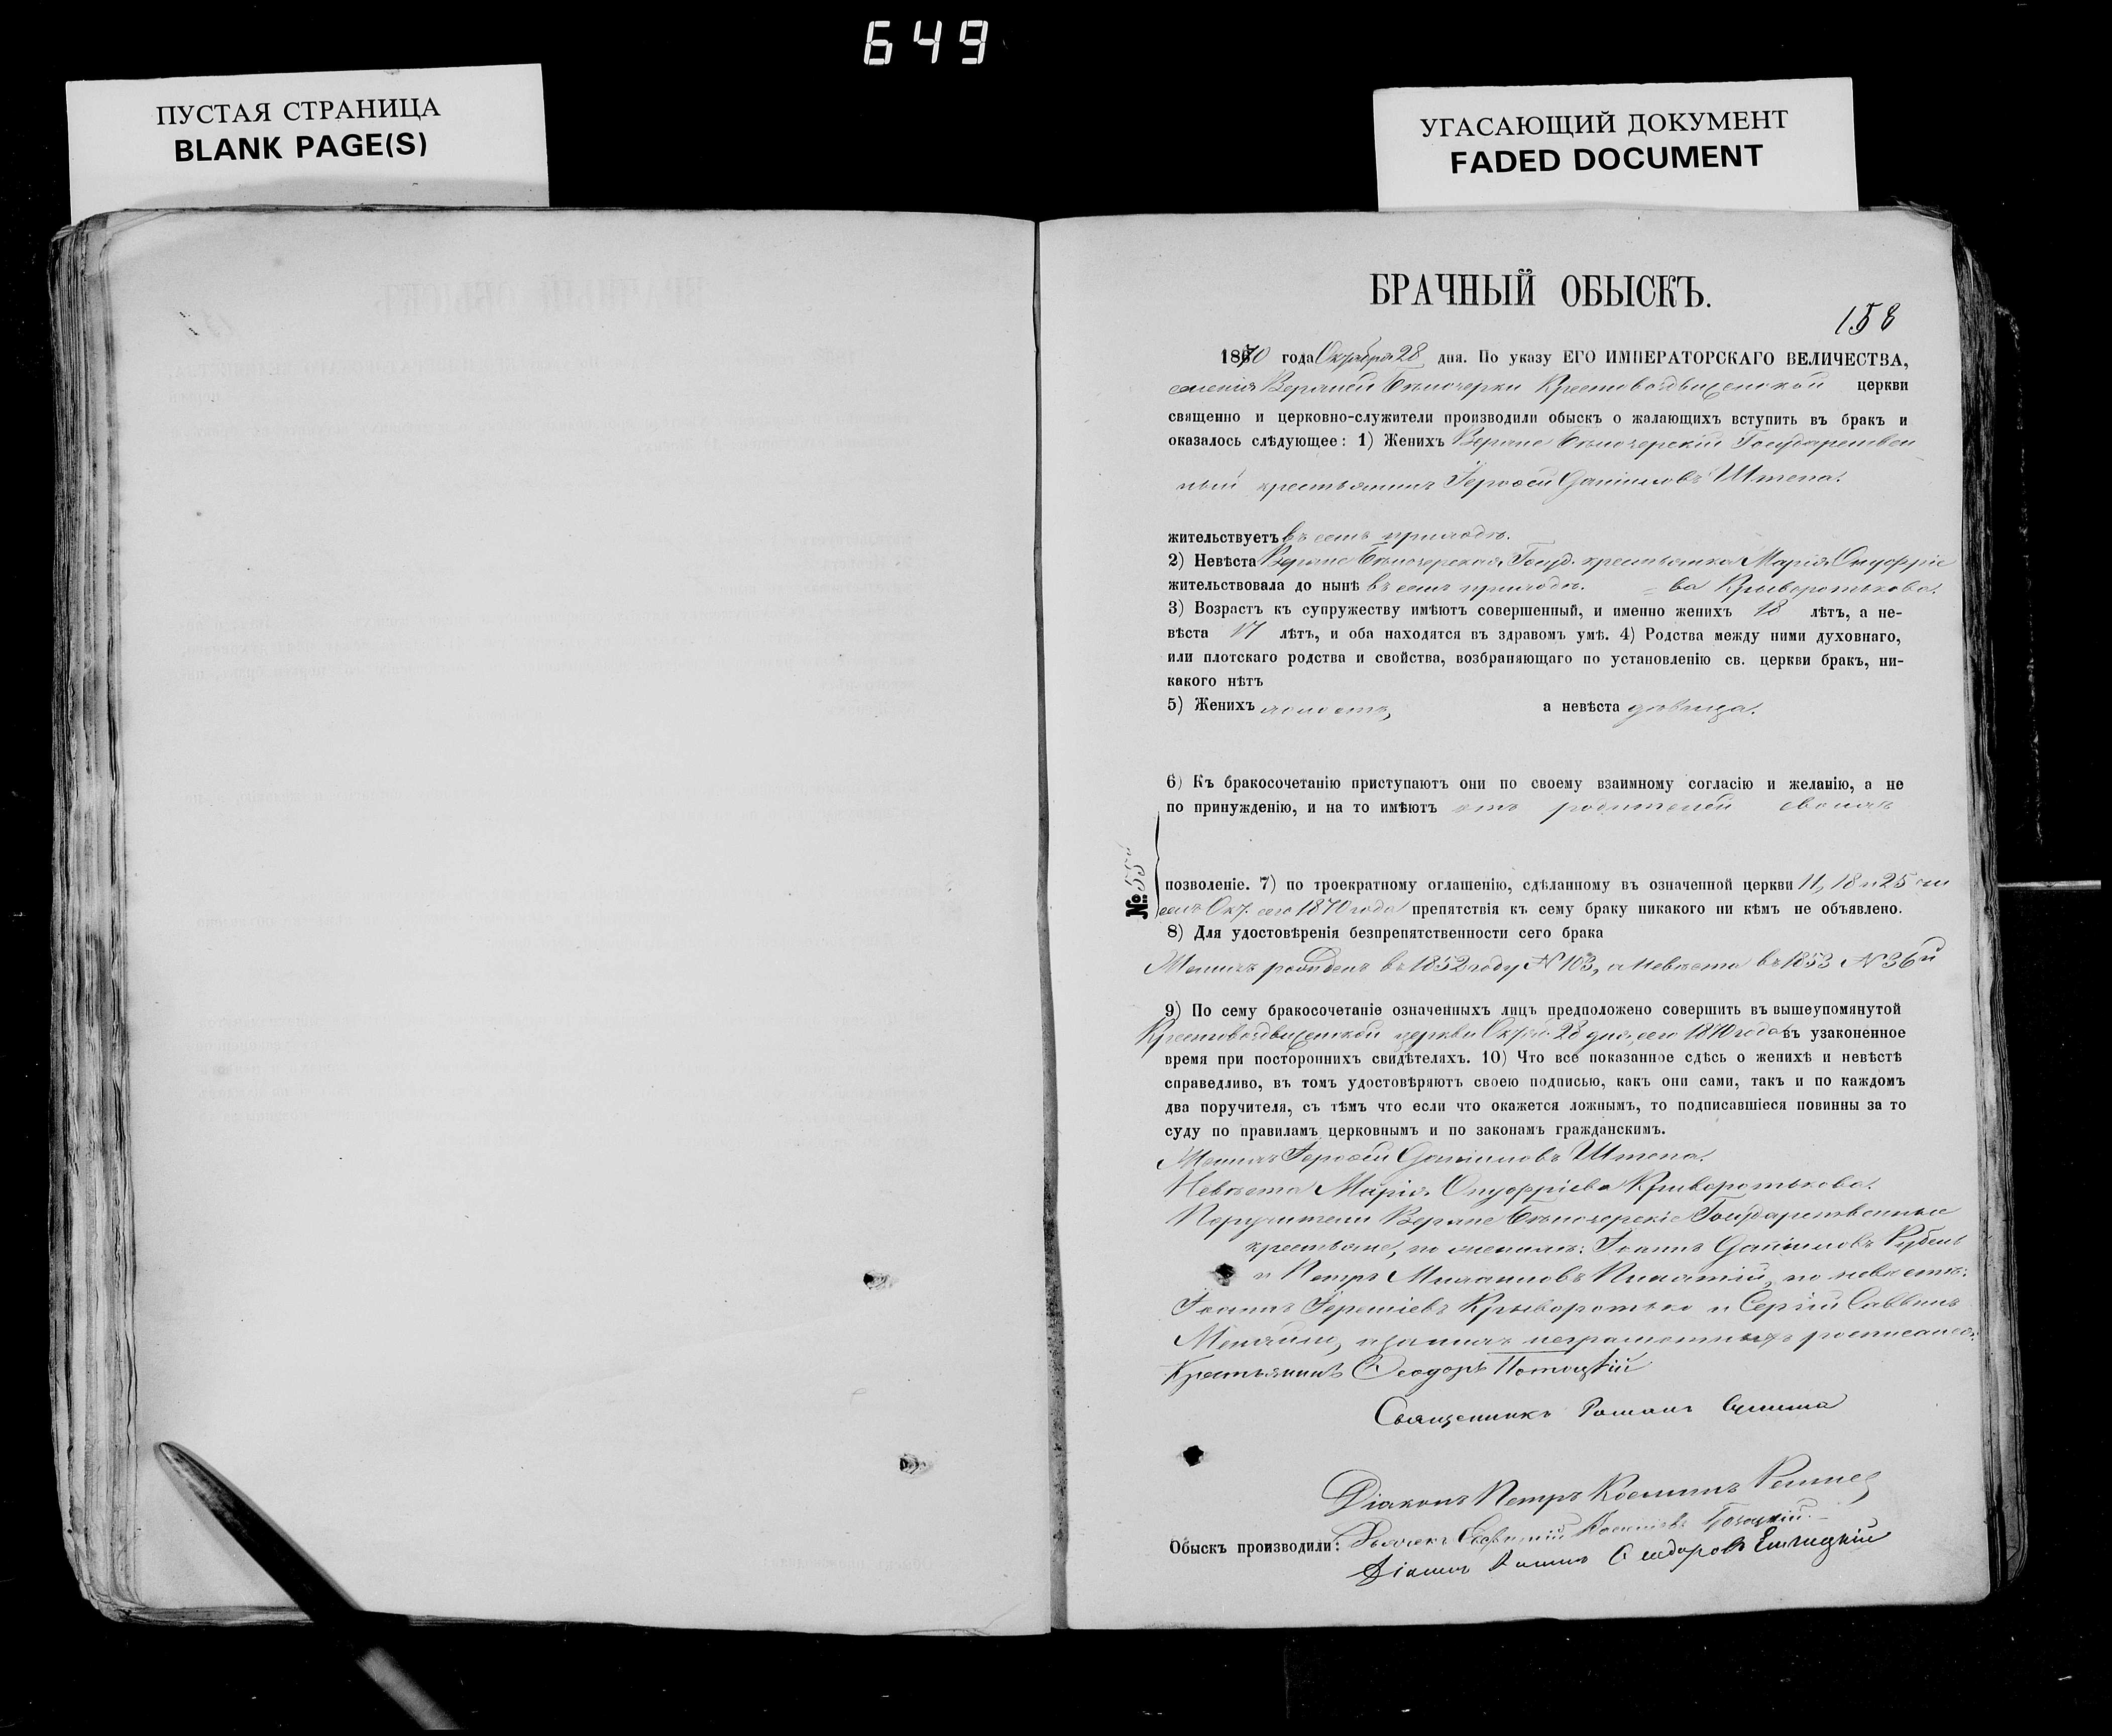 649
ПУСТАЯ СТРАНИЦА
BLANK PAGE(S)
УГАСАЮЩИЙ ДОКУМЕНТ
FADED DOCUMENT
БРАЧНЫЙ ОБЫСКЪ.
158
1870 года Октября 28 дня. По указу ЕГО ИМПЕРАТОРСКАГО ВЕЛИЧЕСТВА,
селенія Верхней Бѣлозерки Крестовоздвиженской церкви
священно и церковно-служители производили обыскъ о жалающихъ вступить въ бракъ и
оказалось слѣдующее: 1) Женихъ Верхне Бѣлозерскій Государствен
ный крестьянинъ Даніиловъ Штепа.
жительствуетъ въ семъ приходѣ.
2) Невѣста Верхне Бѣлозерская Госуд. крестьянка Марія Онуфріе
жительствовала до нынѣ въ семъ приходѣ. = ва Криворотькова.
3) Возрастъ къ супружеству имѣютъ совершенный, и именно женихъ 18 лѣтъ, а не-
вѣста 17 лѣтъ, и оба находятся въ здравомъ умѣ. 4) Родства между ними духовнаго,
или плотскаго родства и свойства, возбраняющаго по установленію св. церкви бракъ, ни-
какого нѣтъ
5) Женихъ холостъ, а невѣста дѣвица.
6) Къ бракосочетанію приступаютъ они по своему взаимному согласію и желанію, а не
по принужденію, и на то имѣютъ отъ родителей своихъ
№ 55й
позволеніе. 7) по троекратному оглашенію, сдѣланному въ означенной церкви 11, 18 и 25 чи
селъ Окт. сего 1870 года препятствія къ сему браку никакого ни кѣмъ не объявлено.
8) Для удостовѣренія безпрепятственности сего брака
Женихъ рожденъ въ 1852 году № 103, а Невѣста въ 1853 № 36й
9) По сему бракосочетаніе означенныхъ лицъ предположено совершить въ вышеупомянутой
Крестовоздвиженской церкви 28 дня, сего 1870 года въ узаконенное
время при постороннихъ свидѣтеляхъ. 10) Что все показанное сдѣсь о женихѣ и невѣстѣ
справедливо, въ томъ удостовѣряютъ своею подписью, какъ они сами, такъ и по каждомъ
два поручителя, съ тѣмъ что если что окажется ложнымъ, то подписавшіеся повинны за то
суду по правиламъ церковнымъ и по законамъ гражданскимъ.
Женихъ Даніиловъ Штепа.
Невѣста Марія Онуфріева Криворотькова.
Поручители Верхне Бѣлозерскіе Государственные
крестьяне, по женихѣ: Іоаннъ Даніиловъ
и Петръ Михаиловъ по невѣстѣ:
Іоаннъ Криворотько и Сергій Саввинъ
а за нихъ неграмотныхъ росписался
Крестьянинъ Ѳеодоръ Потоцкій
Священникъ Романъ
Діаконъ Петръ Косминъ
Обыскъ производили: Дьячекъ